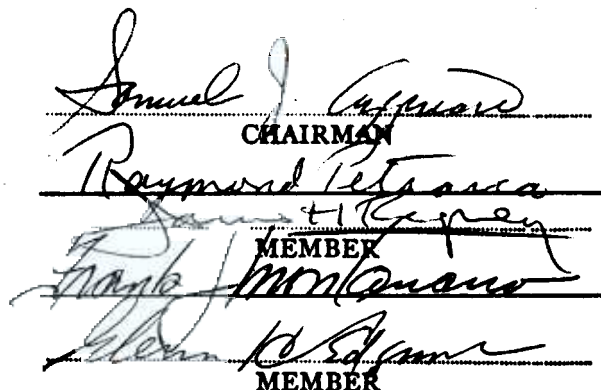 Samuel J
CHAIRMAN
Raymond Petrarca
H
MEMBER
Frank J Montanaro
Glenn
MEMBER